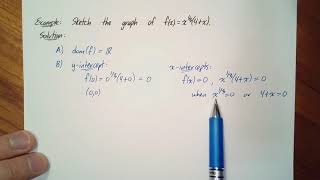 Example: Sketch the graph of f(x)=x^{1/3}(4+x).
Solution:
A) dom(f) = ℝ
B) y-intercept:
f(0) = 0^{1/3}(4+0) = 0
(0,0)
x-intercepts:
f(x)=0, x^{1/3}(4+x)=0
when x^{1/3}=0 or 4+x=0